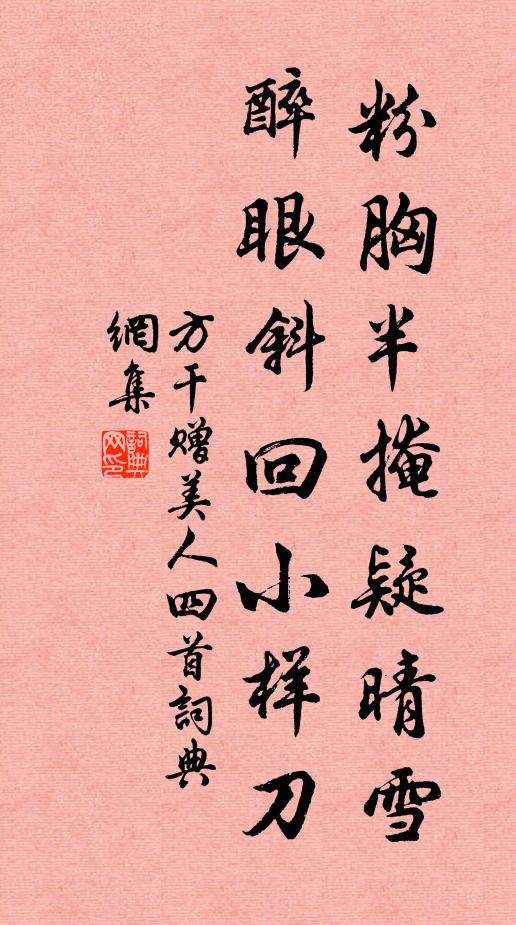 粉胸半掩疑晴雪
醉眼斜回小样刀
方干赠美人四首詞典
網集
詞典網印